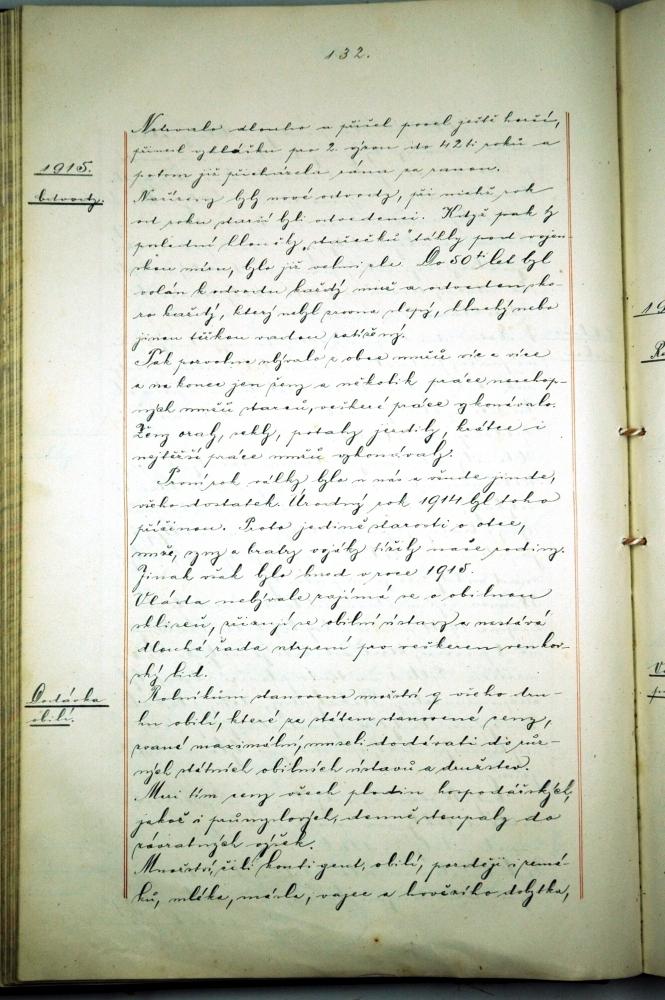 132.
Netrvalo dlouho a přišel posel ještě horší,
přinesl vyhlášku pro 2. výzvu do 42ti roků a
potom již přicházela rána za ranou.
1915.
Odvody.
Nařízeny byly nové odvody, při nichž rok
od roku starší byli odvedenci. Když pak ty
poslední klasičky „dědečků“ táhly pod vojen-
skou míru, bylo již velmi zle. Do 50ti let byl
volán k odvodu každý muž a odveden sko-
ro každý, který nebyl zrovna slepý, chromý nebo
jinou těžkou vadou zatížený.
Tak pozvolna ubývalo z obce mužů více a více
a na konec jen ženy a několik práce neschop-
ných mužů starců, veškeré práce vykonávalo.
Ženy oraly, sekly, potahy jezdily, krátce i
nejtěžší práce mužů vykonávaly.
První rok války bylo u nás a všude jinde,
všeho dostatek. Úrodný rok 1914 byl toho
příčinou. Proto jedině starosti o otce,
muže, syny a bratry vojáky tížily naše rodiny.
Jinak však bylo hned v roce 1915.
Vláda nebývale zajímá se o obilnou
sklizeň, zřizují se obilní ústavy a nastává
dlouhá řada utrpení pro veškeren venkov-
ský lid.
Dodávka
obilí.
Rolníkům stanoveno množství q všeho dru-
hu obilí, které za státem stanovené ceny,
zvané maximální, museli dodávati do růz-
ných státních obilních ústavů a družstev.
Mezi tím ceny všech plodin hospodářských,
jakož i průmyslových, denně stoupaly do
závratných výšek.
Množství, čili kontigent, obilí, později i zemá-
ků, mléka, másla, vajec a hovězího dobytka,